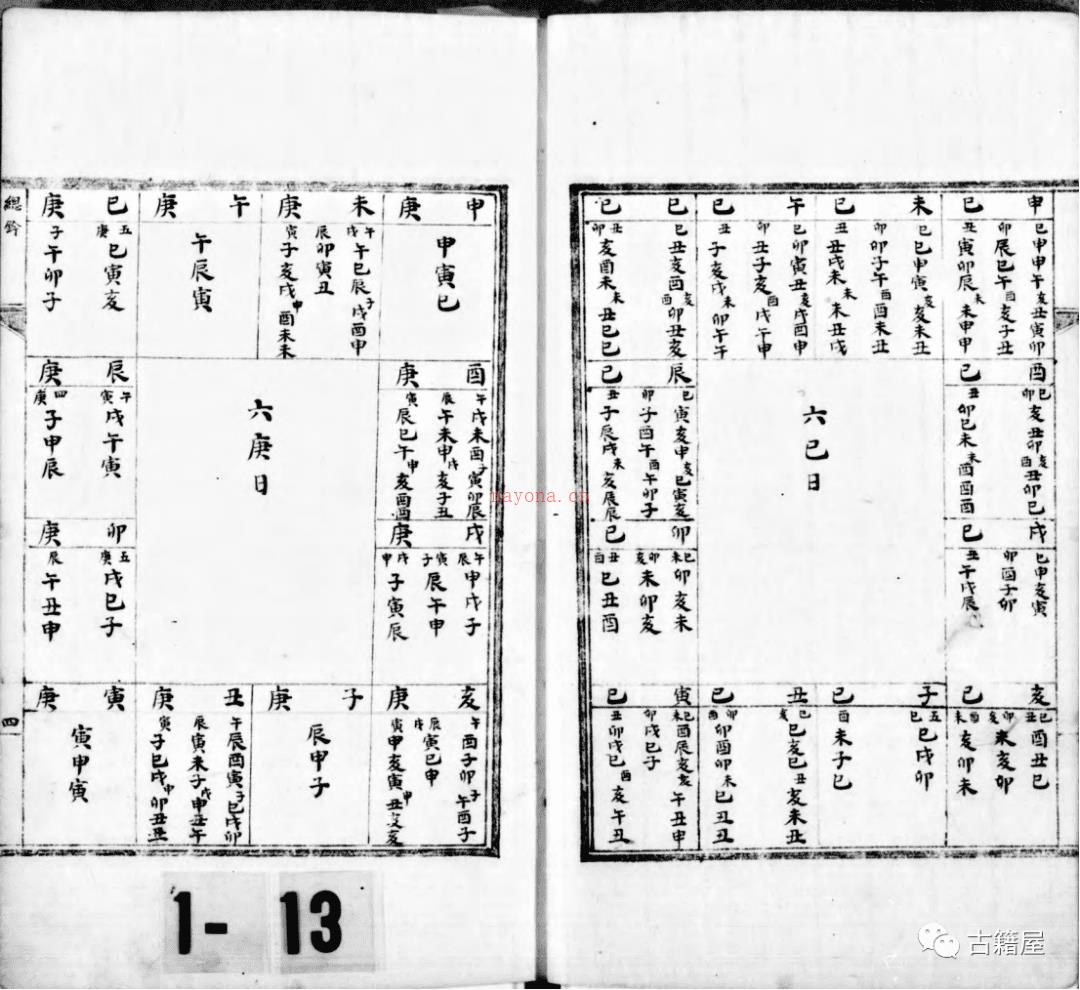 申 己
巳申申午亥丑寅卯
卯辰巳午酉亥子丑
丑寅卯辰未未申申
未 己
巳巳申寅亥亥未丑
卯卯子午酉酉未丑
丑丑戌未未未丑戌
午 己
巳卯寅丑亥戌酉申
卯丑子亥酉戌午申
丑子亥戌未卯午午
巳 己
巳丑亥酉亥酉卯丑亥
丑卯亥酉未未丑巳巳
酉 己
巳卯亥丑卯亥酉丑卯巳
丑卯巳未未酉酉酉
六己日
辰 己
巳寅亥申亥巳寅亥
卯子酉午酉午卯子
丑子辰戌未亥辰辰
戌 己
巳申亥寅
卯酉子卯
丑午戌辰
卯 己
巳未卯亥未
卯亥未卯亥
丑酉巳丑酉
亥 己
巳丑酉丑巳
卯亥未亥卯
酉未亥卯未
子 己
五巳巳戌卯
酉未子巳
丑 己
巳亥巳亥巳丑亥未丑
卯酉卯酉卯未巳丑丑
寅 己
巳未酉辰亥亥午丑申
卯戌巳子
丑卯戌巳酉亥午丑
申 庚
申寅巳
未 庚
午戌午巳辰子戌酉申
辰卯寅丑
寅子亥戌申酉未未
午 庚
午辰寅
巳 庚
五庚巳寅亥
子午卯子
酉 庚
午戌未酉子寅卯辰
辰午未申戌亥子丑
寅辰巳午申亥酉酉
六庚日
辰 庚
午寅戌午寅
四庚子申辰
戌 庚
午辰申戌子
寅子辰午申
戌申子寅辰
卯 庚
五庚戌巳子
辰午丑申
亥 庚
午酉子卯子午酉子
辰戌寅巳申
寅申亥寅申丑亥亥
子 庚
辰申子
丑 庚
午辰酉寅子巳戌卯
辰寅未子戌申丑午
寅子巳戌申卯丑丑
寅 庚
寅申寅
總鈐
四
1-13
nayona.cn
古籍屋